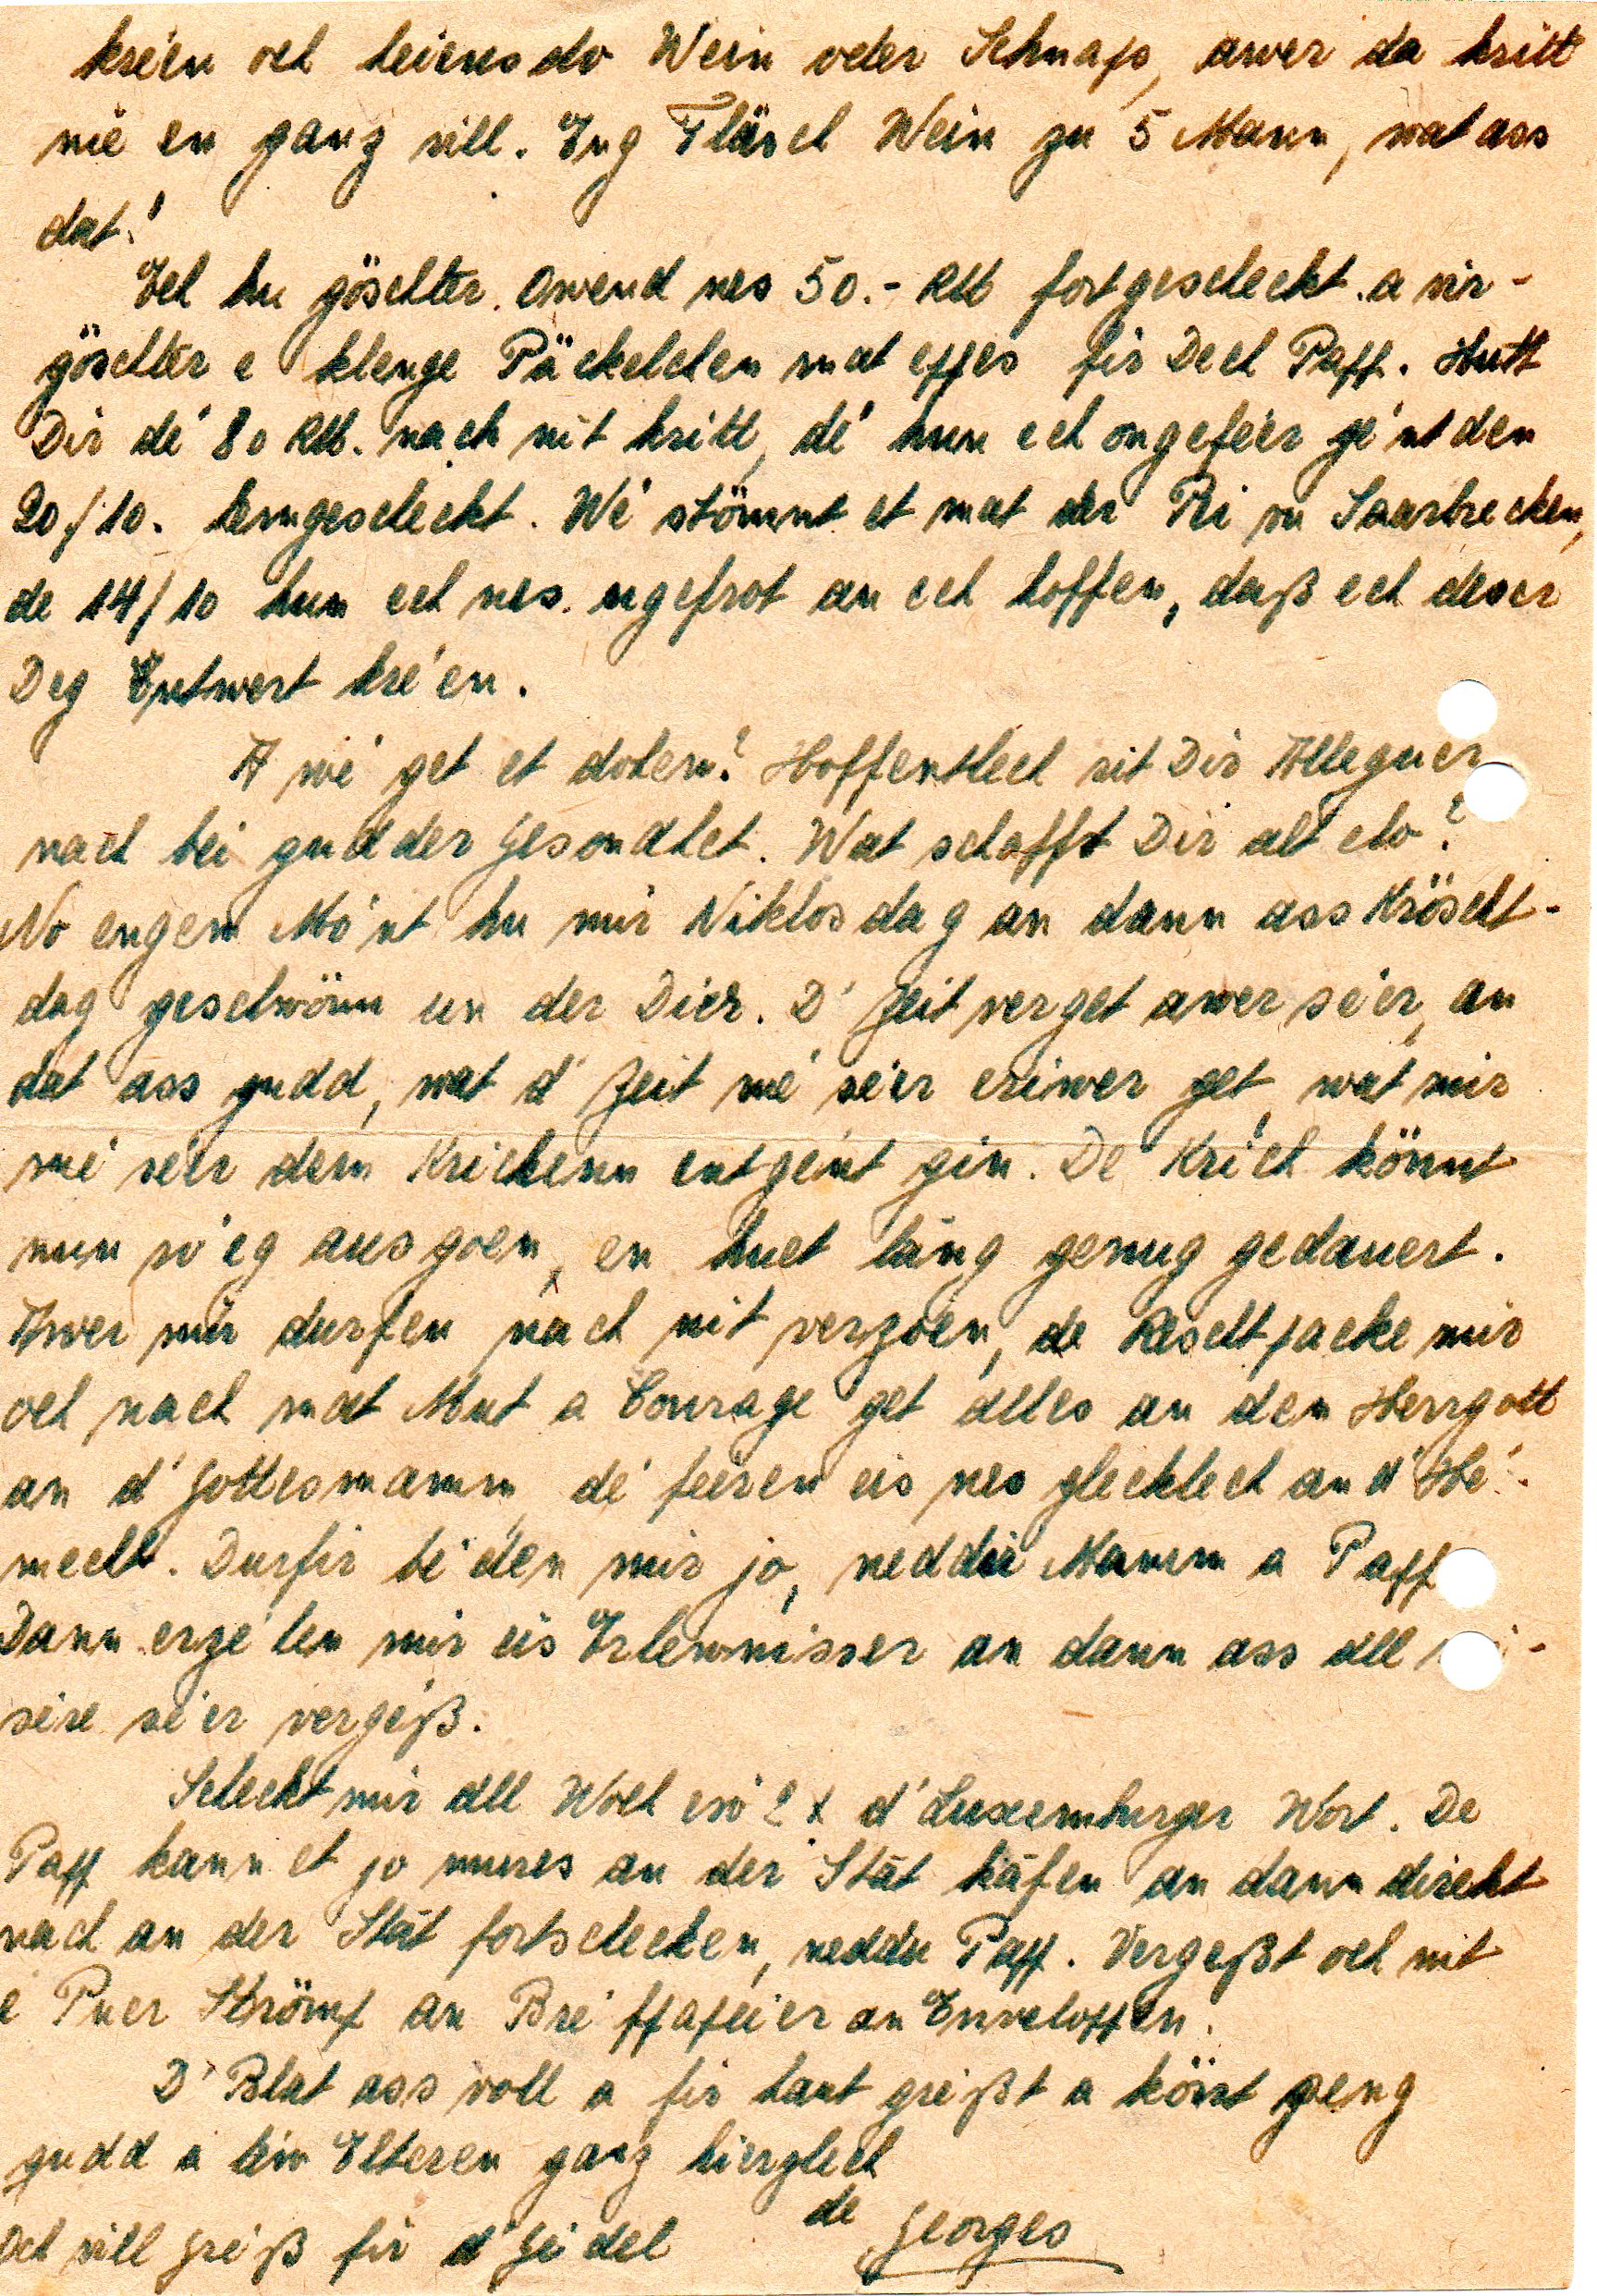 kréen och heiansdo Wein oder Schnaps, awer da kritt
nië en ganz vill. Eng Fläsch Wein zu 5 Mann, wat ass
dat!
Ech hu göschter Owend nes 50.- RM fortgescheckt a vir-
göschter e klenge Päckelchen mat eppes fir Dech Papp. Hutt
Dir dé 80 RM. nach nit kritt, dé hun ech ongeféer gént den
20/10. hemgescheckt. Wé stömmt et mat der Pei vu Saarbrecken,
de 14/10 hun ech nes ugefrot an ech hoffen, daß ech deser
Deg Entwert kréen.
A wé get et dohem? Hoffentlech sit Dir Alleguer
nach bei gudder Gesondhet. Wat schafft Dir alt elo?
No engem Mo'nt hu mir Niklosdag an dann ass Kröscht-
dag geschwönn un der Dier. D'Zeit verget awer séer, an
dat ass gudd, wat d'Zeit mé séer eriwer get, wat mir
mé séer dem Krichenn entgéint gin. De Kri'ch könnt
nun so'eg ausgoen, en huet läng genug gedauert.
Awer mir durfen nach nit verzoen, de Reschtpacke mir
och nach mat Mut a Courage get alles an den Herrgott
an d'Gottesmamm, dé féeren eis nes glecklech an d'Hé-
mecht. Durfir bieden mir jo, neddir Mamm a Papp
Dann erzielen mir eis Erlewnisser an dann ass all
sère séer vergéß.
Scheckt mir all Woch esó 2 x d'Luxemburger Wort. De
Papp kann et jo mures an der Stât kâfen an dann direkt
nach an der Stât fortschecken, neddir Papp. Vergeßt och nit
e Puer Strömp an Bréifpapeier an Enveloppen.
D'Blat ass voll a fir haut gréißt a könnt geng
gudd a léiw Elteren ganz hierzlech
de Georges
Och vill Gréiß fir d'Gidel